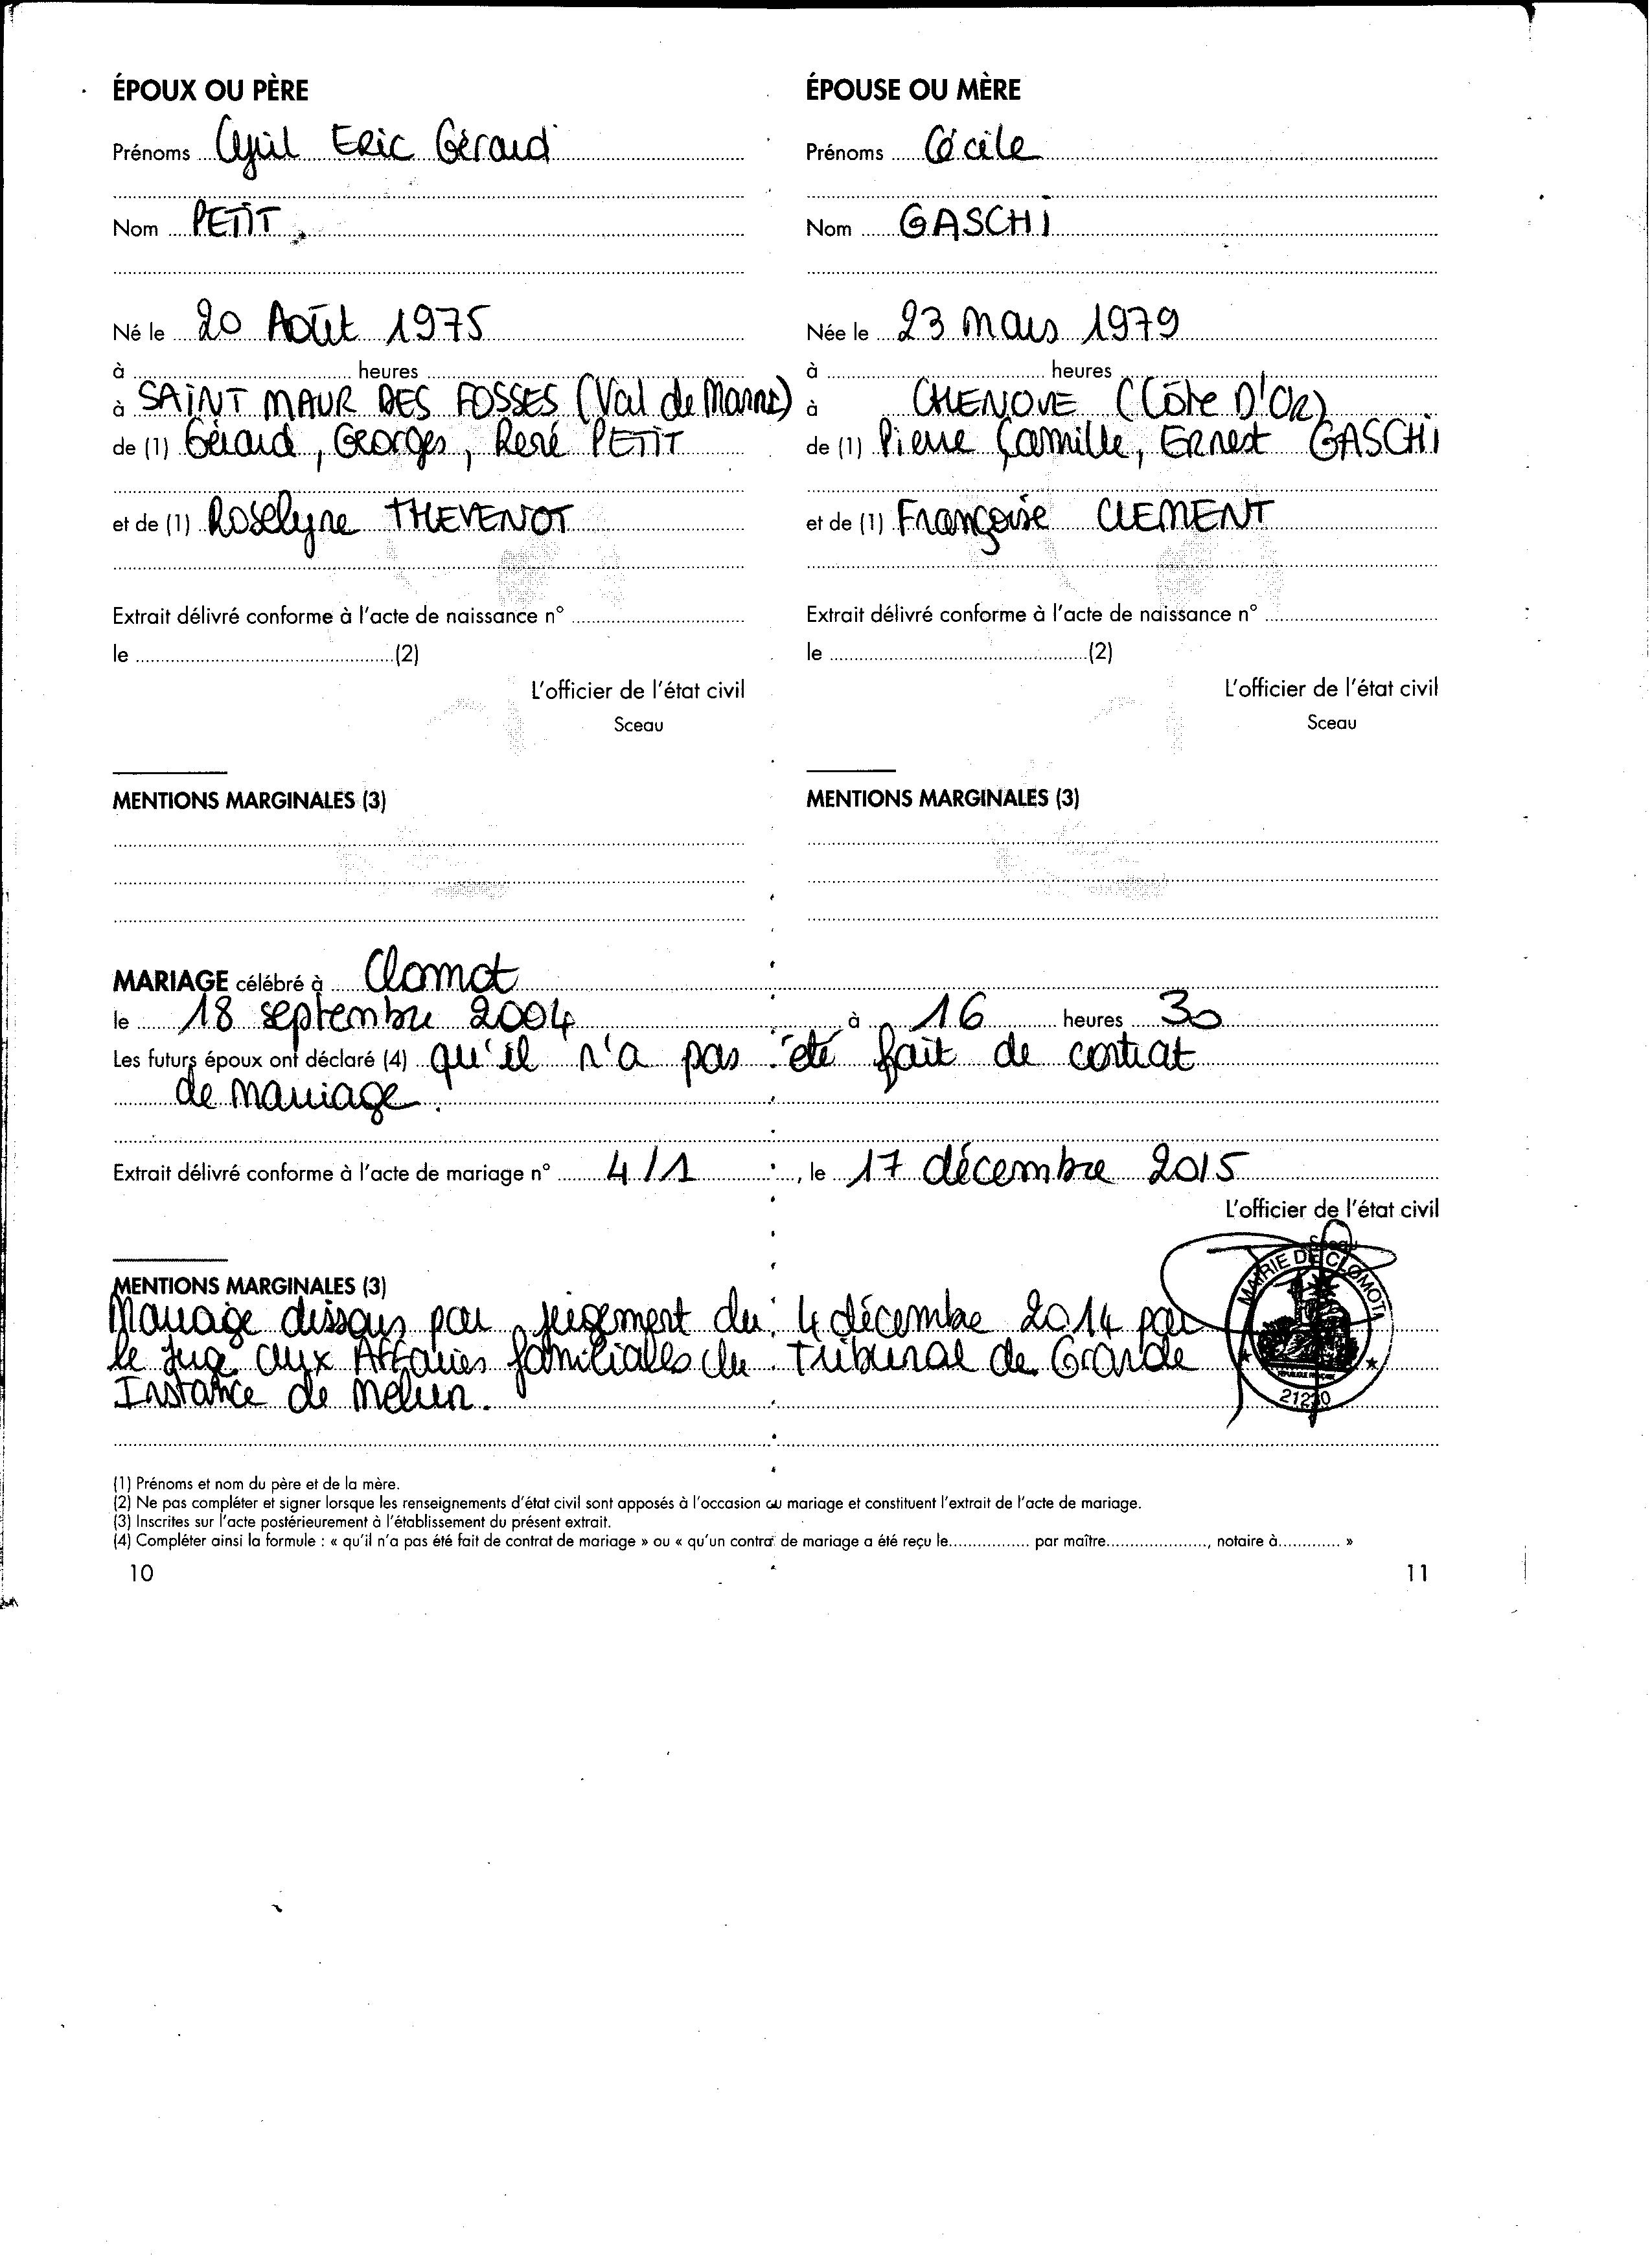 ÉPOUX OU PÈRE
Prénoms Cyril Eric Gérard
Nom PETIT
Né le 20 Août 1975
à heures
à SAINT MAUR DES FOSSES (Val de Marne)
de (1) Gérard, Georges, René PETIT
et de (1) Roselyne THEVENOT
Extrait délivré conforme à l'acte de naissance n°
le (2)
L'officier de l'état civil
Sceau
MENTIONS MARGINALES (3)
ÉPOUSE OU MÈRE
Prénoms Cécile
Nom GASCHI
Née le 23 mars 1979
à heures
à CHENOVE (Côte D'OR)
de (1) Pierre Camille, Ernest GASCHI
et de (1) Françoise CLEMENT
Extrait délivré conforme à l'acte de naissance n°
le (2)
L'officier de l'état civil
Sceau
MENTIONS MARGINALES (3)
MARIAGE célébré à Clomot
le 18 septembre 2004 à 16 heures 30
Les futurs époux ont déclaré (4) qu'il n'a pas été fait de contrat
de mariage.
Extrait délivré conforme à l'acte de mariage n° 4/1, le 17 décembre 2015
L'officier de l'état civil
Sceau
MAIRIE DE CLOMOT
RÉPUBLIQUE FRANÇAISE
MENTIONS MARGINALES (3)
Mariage dissous par jugement du 4 décembre 2014 par
le Juge aux Affaires familiales du Tribunal de Grande
Instance de Melun.
(1) Prénoms et nom du père et de la mère.
(2) Ne pas compléter et signer lorsque les renseignements d'état civil sont apposés à l'occasion du mariage et constituent l'extrait de l'acte de mariage.
(3) Inscrites sur l'acte postérieurement à l'établissement du présent extrait.
(4) Compléter ainsi la formule : « qu'il n'a pas été fait de contrat de mariage » ou « qu'un contrat de mariage a été reçu le................ par maître...................., notaire à............. »
10
11